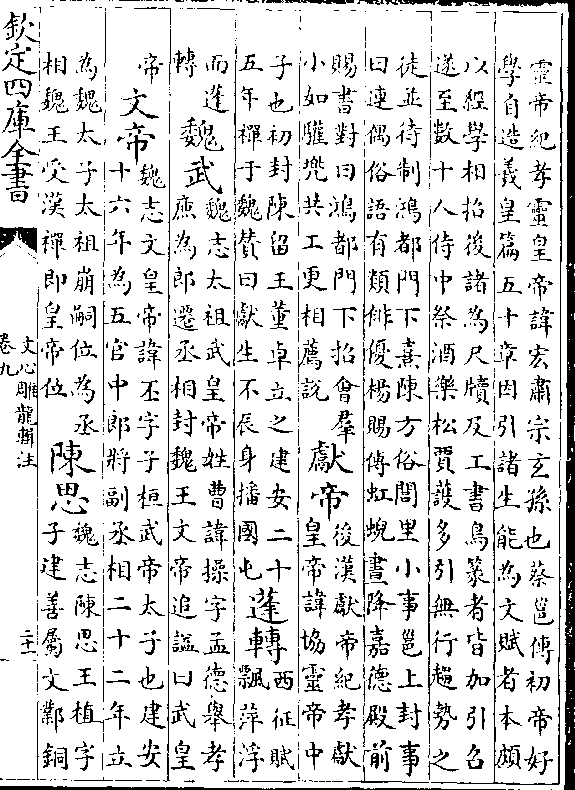 靈帝紀孝靈皇帝諱宏肅宗玄孫也蔡邕傳初帝好
學自造羲皇篇五十章因引諸生能為文賦者本頗
以經學相招後諸為尺牘及工書鳥篆者皆加引召
遂至數十人侍中祭酒樂松賈護多引無行趨勢之
徒並待制鴻都門下熹陳方俗閭里小事邕上封事
曰連偶俗語有類俳優楊賜傳虹蜺晝降嘉德殿前
賜書對曰鴻都門下招會羣
小如驩兜共工更相薦說
獻帝
後漢獻帝紀孝獻
皇帝諱協靈帝中
子也初封陳留王董卓立之建安二十
五年禪于魏贊曰獻生不辰身播國屯
蓬轉
西征賦
飄萍浮
而蓬
轉
魏武
魏志太祖武皇帝姓曹諱操字孟德舉孝
廉為郎遷丞相封魏王文帝追謚曰武皇
帝
文帝
魏志文皇帝諱丕字子桓武帝太子也建安
十六年為五官中郎將副丞相二十二年立
為魏太子太祖崩嗣位為丞
相魏王受漢禪即皇帝位
陳思
魏志陳思王植字
子建善屬文鄴銅
欽定四庫全書
文心雕龍輯注
卷九
二十一